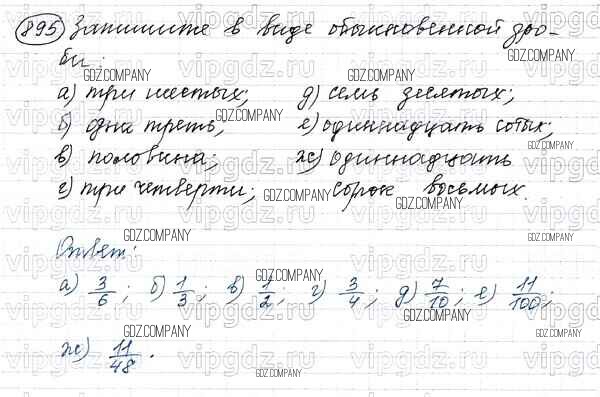 895 Запишите в виде обыкновенной дро-
би:
а) три шестых; д) семь десятых;
б) одна треть; е) одиннадцать сотых;
в) половина; ж) одиннадцать
г) три четверти; сорок восьмых.
Ответ:
а) 3/6; б) 1/3; в) 1/2; г) 3/4; д) 7/10; е) 11/100;
ж) 11/48.